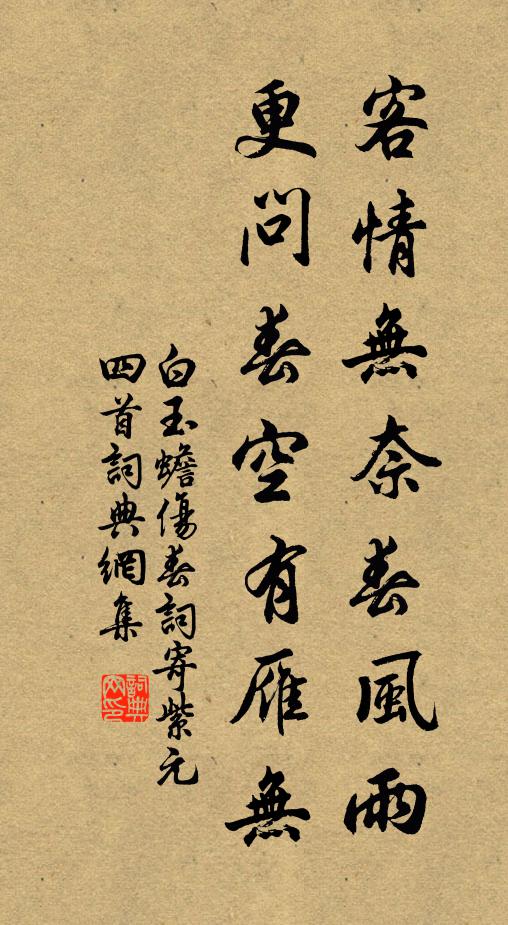 客情無奈春風雨
更問春空有雁無
白玉蟾傷春詞寄紫元
四首詞典網集